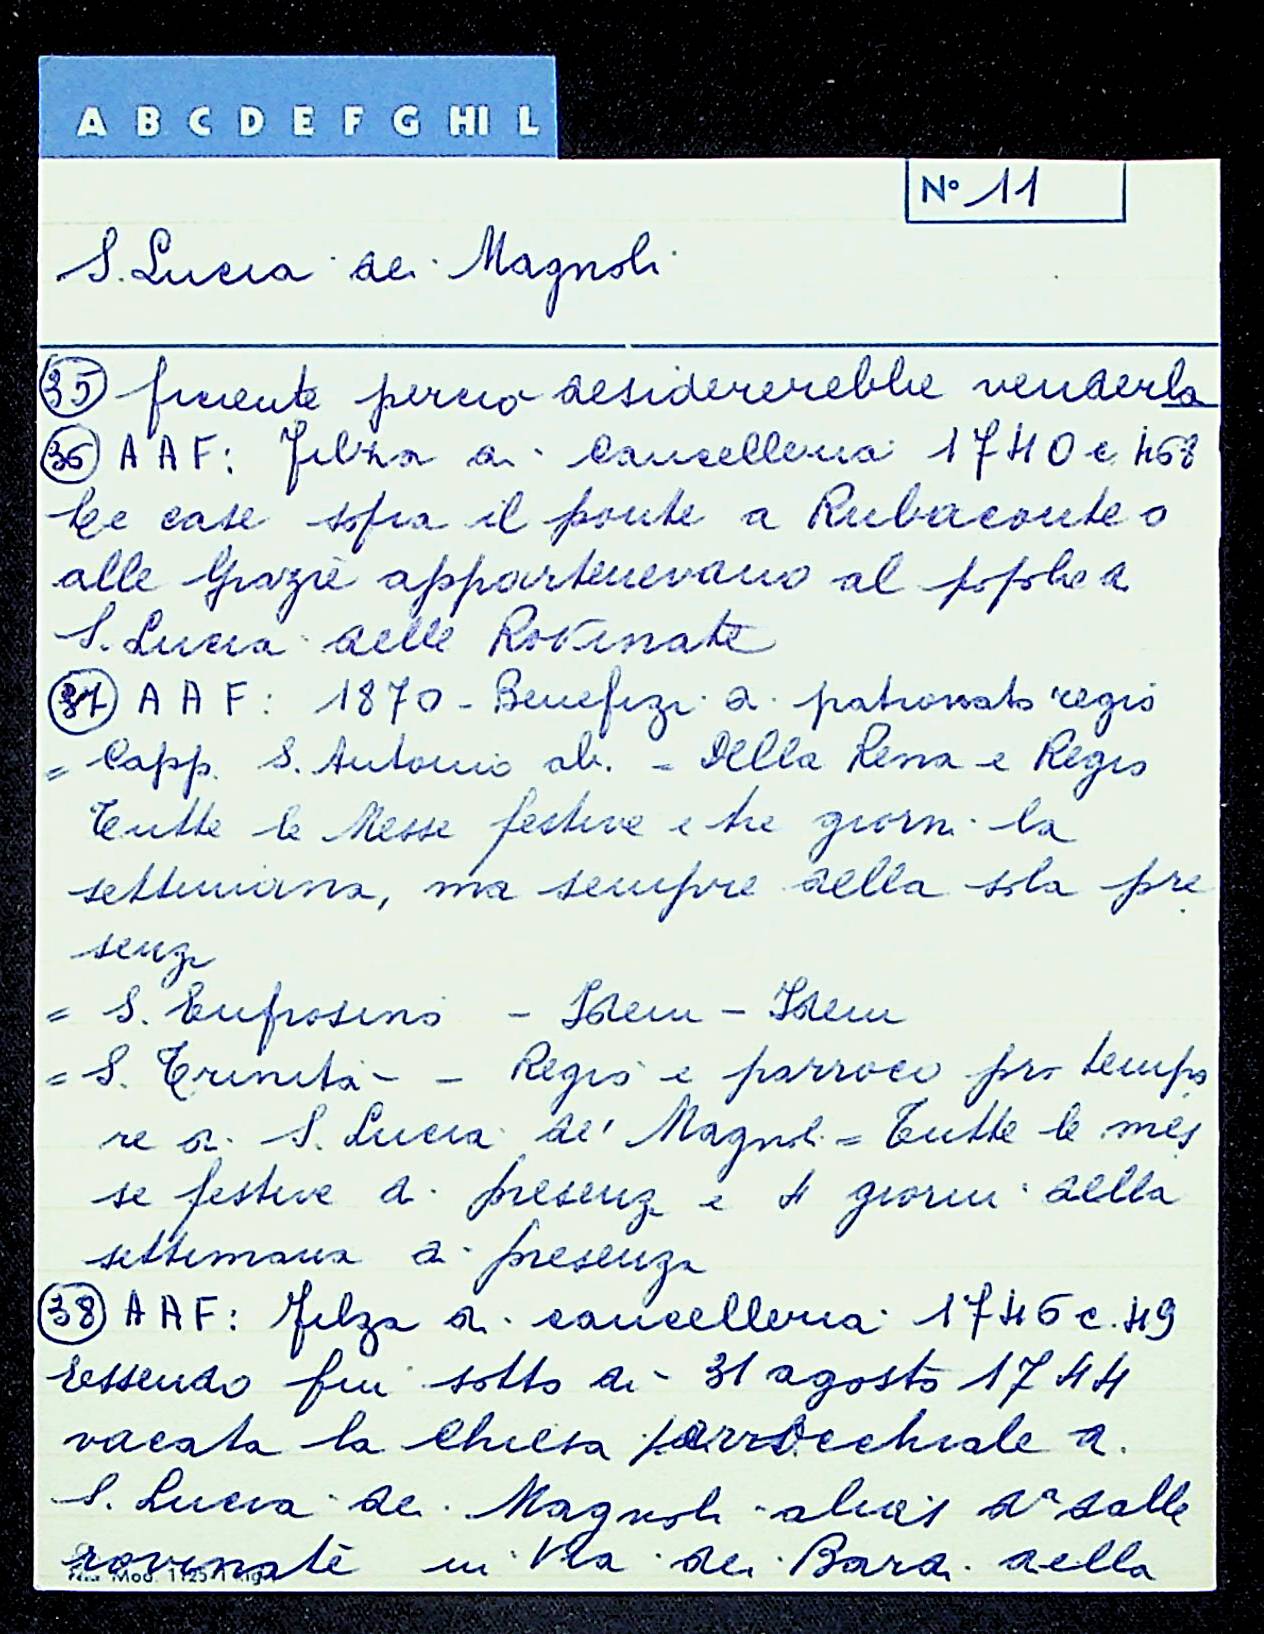 A B C D E F G HI L
N° 11
S. Lucia dei Magnoli
35 ficiente perciò desidererebbe venderla
36 A A F: Filza di Cancelleria 1740 c. 468
Le case sopra il ponte a Rubaconte o
alle Grazie appartenevano al popolo di
S. Lucia delle Rovinate
37 A A F: 1870 - Benefizi di patronato regio
= Capp. S. Antonio ab. - Della Rena e Regio
Tutte le Messe festive e tre giorni la
settimana, ma sempre della sola pre
senza
= S. Eufrosino - Idem - Idem
= S. Trinità - Regio e parroco pro tempo
re di S. Lucia de' Magnoli = Tutte le mes
se festive di presenza e 4 giorni della
settimana di presenza
38 A A F: Filza di cancelleria 1746 c. 49
Essendo fin sotto di 31 agosto 1744
vacata la Chiesa parrocchiale di
S. Lucia dei Magnoli alias d.a dalle
rovinate in Via dei Bardi della
Mod. 1125